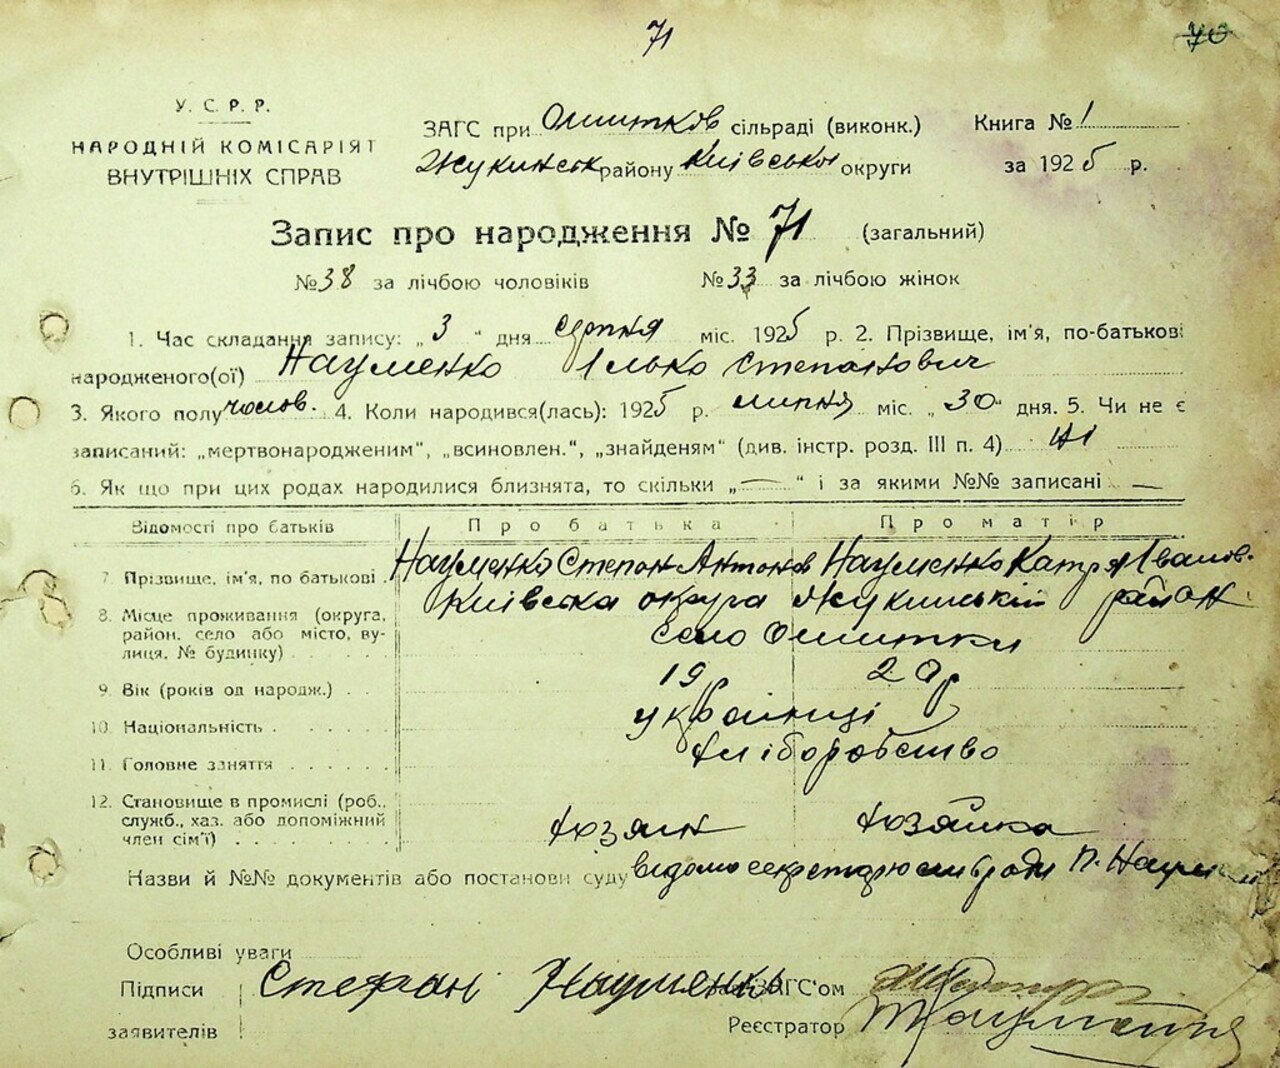 71
70
У. С. Р. Р.
НАРОДНІЙ КОМІСАРІЯТ
ВНУТРІШНІХ СПРАВ
ЗАГС при Ошитков сільраді (виконк.)
Жукинськ району Київської округи
Книга № 1
за 1925 р.
Запис про народження № 71 (загальний)
№ 38 за лічбою чоловіків № 33 за лічбою жінок
1. Час складання запису: „ 3 " дня серпня міс. 1925 р. 2. Прізвище, ім'я, по-батькові
народженого(ої) Науменко Ілько Степанович
3. Якого полу чолов. 4. Коли народився(лась): 1925 р. липня міс. „ 30 " дня. 5. Чи не є
записаний: „мертвонародженим", „всиновлен.", „знайденям" (див. інстр. розд. III п. 4) Ні
6. Як що при цих родах народилися близнята, то скільки „ — " і за якими №№ записані —
Відомості про батьків Про батька Про матір
7. Прізвище, ім'я, по батькові . Науменко Степан Антонов Науменко Катря Іванов.
8. Місце проживання (округа, район, село або місто, вулиця, № будинку) Київська округа Жукинській район
село Ошитки
9. Вік (років од народж.) . . 19 р 20 р
10. Національність . . . . . . українці
11. Головне заняття . . . . . . хліборобство
12. Становище в промислі (роб., служб., хаз. або допоміжний член сім'ї) . . . . . . хозяин хозяйка
Назви й №№ документів або постанови суду відомо секретарю сільради П. Наумен
Особливі уваги
Підписи заявителів Стефан Науменко
ЗАГС'ом
Реєстратор Науменко